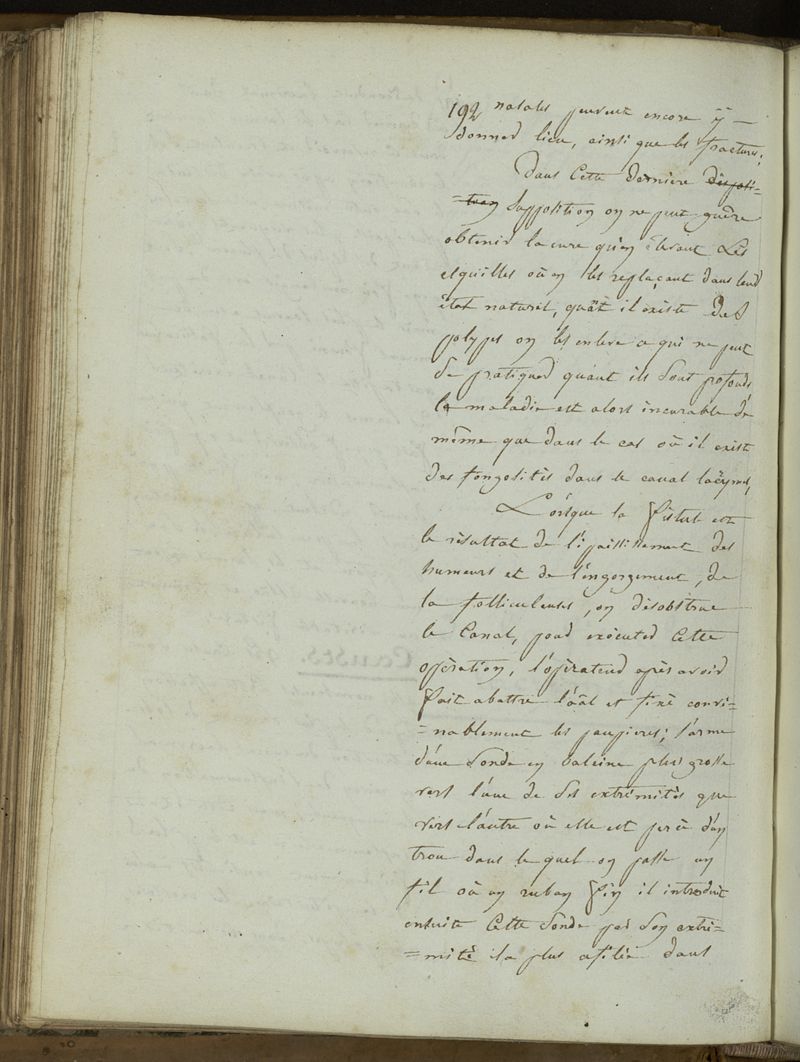 192 nasales peuvent encore ÿ —
donner lieu, ainsi que les fractures;
Dans Cette dernière dispoti=
=tion supposition on ne peut guère
obtenir la cure qu'en élevant Les
esquilles où en les replaçant dans leur
état naturel, quât il existe des
polypes on les enleve ce qui ne peut
se pratiquer quânt ils sont profonds
la maladie est alors incurable de
même que dans le cas où il existe
des fongosités dans le canal lacrymal,
Lorsque la fistule est
le résultat de l'épaississement des
humeurs et de l'engorgement, de
la folliculeuses, on désobstrue
le Canal, pour exécuter Cette
opération, l'opérateur après avoir
fait abattre l'âàl et fixé conve=
=nablement les paupieres; s'arme
d'une sonde en baleine plus grosse
vers l'une de ses extrémités que
vers l'autre où elle est percé d'un
trou dans le quel on passe un
fil où un ruban fin il introduit
ensuite Cette sonde par son extré=
=mité la plus afilée dans
Causes.